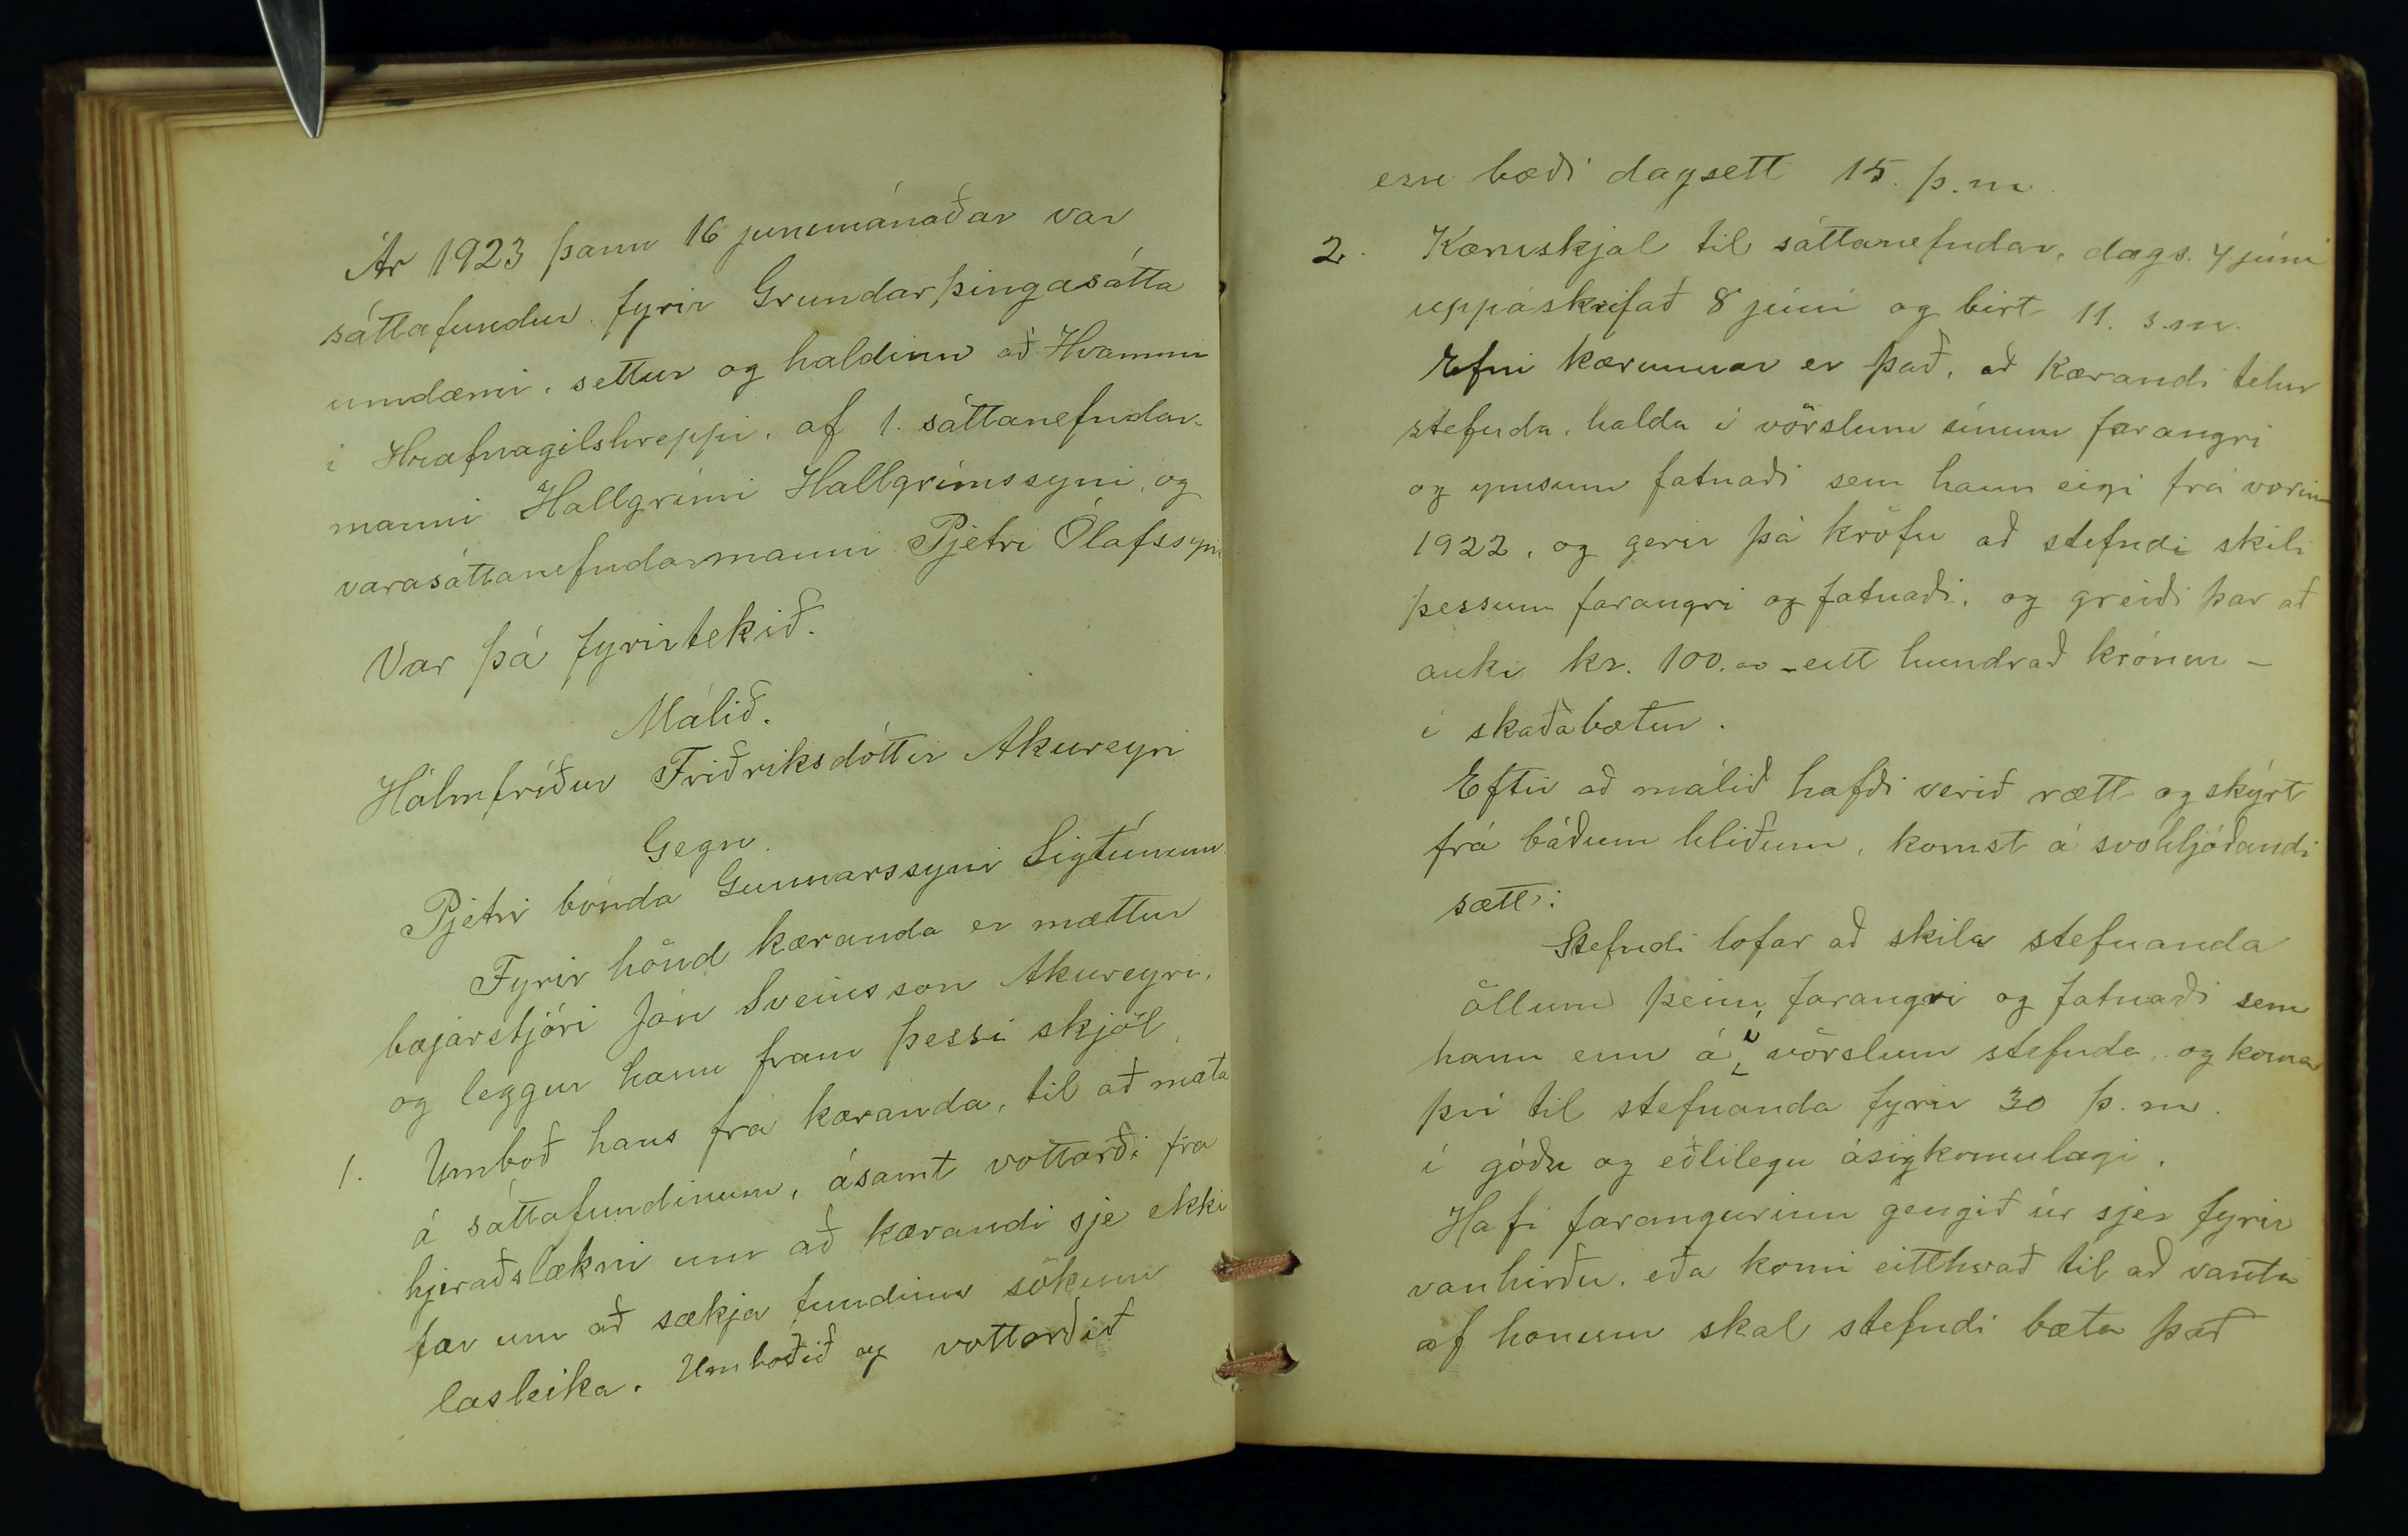 Ár 1923 þann 16 júnímánaðar var
sáttafundur fyrir Grundarþingasátta
umdæmi, settur og haldinn að Hvammi
í Hrafnagilshreppi, af 1. sáttanefndar-
manni Hallgrími Hallgrímssyni, og
varasáttanefndarmanni Pjetri Ólafssyni
Var þá fyrirtekið.
Málið.
Hólmfríður Friðriksdóttir Akureyri
Gegn.
Pjetri bónda Gunnarssyni Sigtúnum.
Fyrir hönd kæranda er mættur
bæjarstjóri Jón Sveinsson Akureyri,
og leggur hann fram þessi skjöl.
1. Umboð hans frá kæranda, til að mæta
á sáttafundinum, ásamt vottorði frá
hjeraðslækni um að kærandi sje ekki
fær um að sækja fundinn sökum
lasleika. Umboðið og vottorðið
eru bæði dagsett 15. þ.m.
2. Kæruskjal til sáttanefndar, dags. 4 júní
uppáskrifað 8 júní og birt 11. s.m.
Efni kærunnar er það, að kærandi telur
stefnda, halda í vörslum sínum farangri
og ýmsum fatnaði sem hann eigi frá vorinu
1922, og gerir þá kröfu að stefndi skili
þessum farangri og fatnaði, og greiði þar að
auki kr. 100.00 - eitt hundrað krónur -
í skaðabætur.
Eftir að málið hafði verið rætt og skýrt
frá báðum hliðum, komst á svohljóðandi
sætt:
Stefndi lofar að skila stefnanda
öllum þeim, farangri og fatnaði sem
hann enn á í vörslum stefnda, og koma
því til stefnanda fyrir 30 þ.m.
í góðu og eðlilegu ásigkomulagi.
Hafi farangurinn gengið úr sjer fyrir
vanhirðu, eða komi eitthvað til að vanta
af honum skal stefndi bæta það